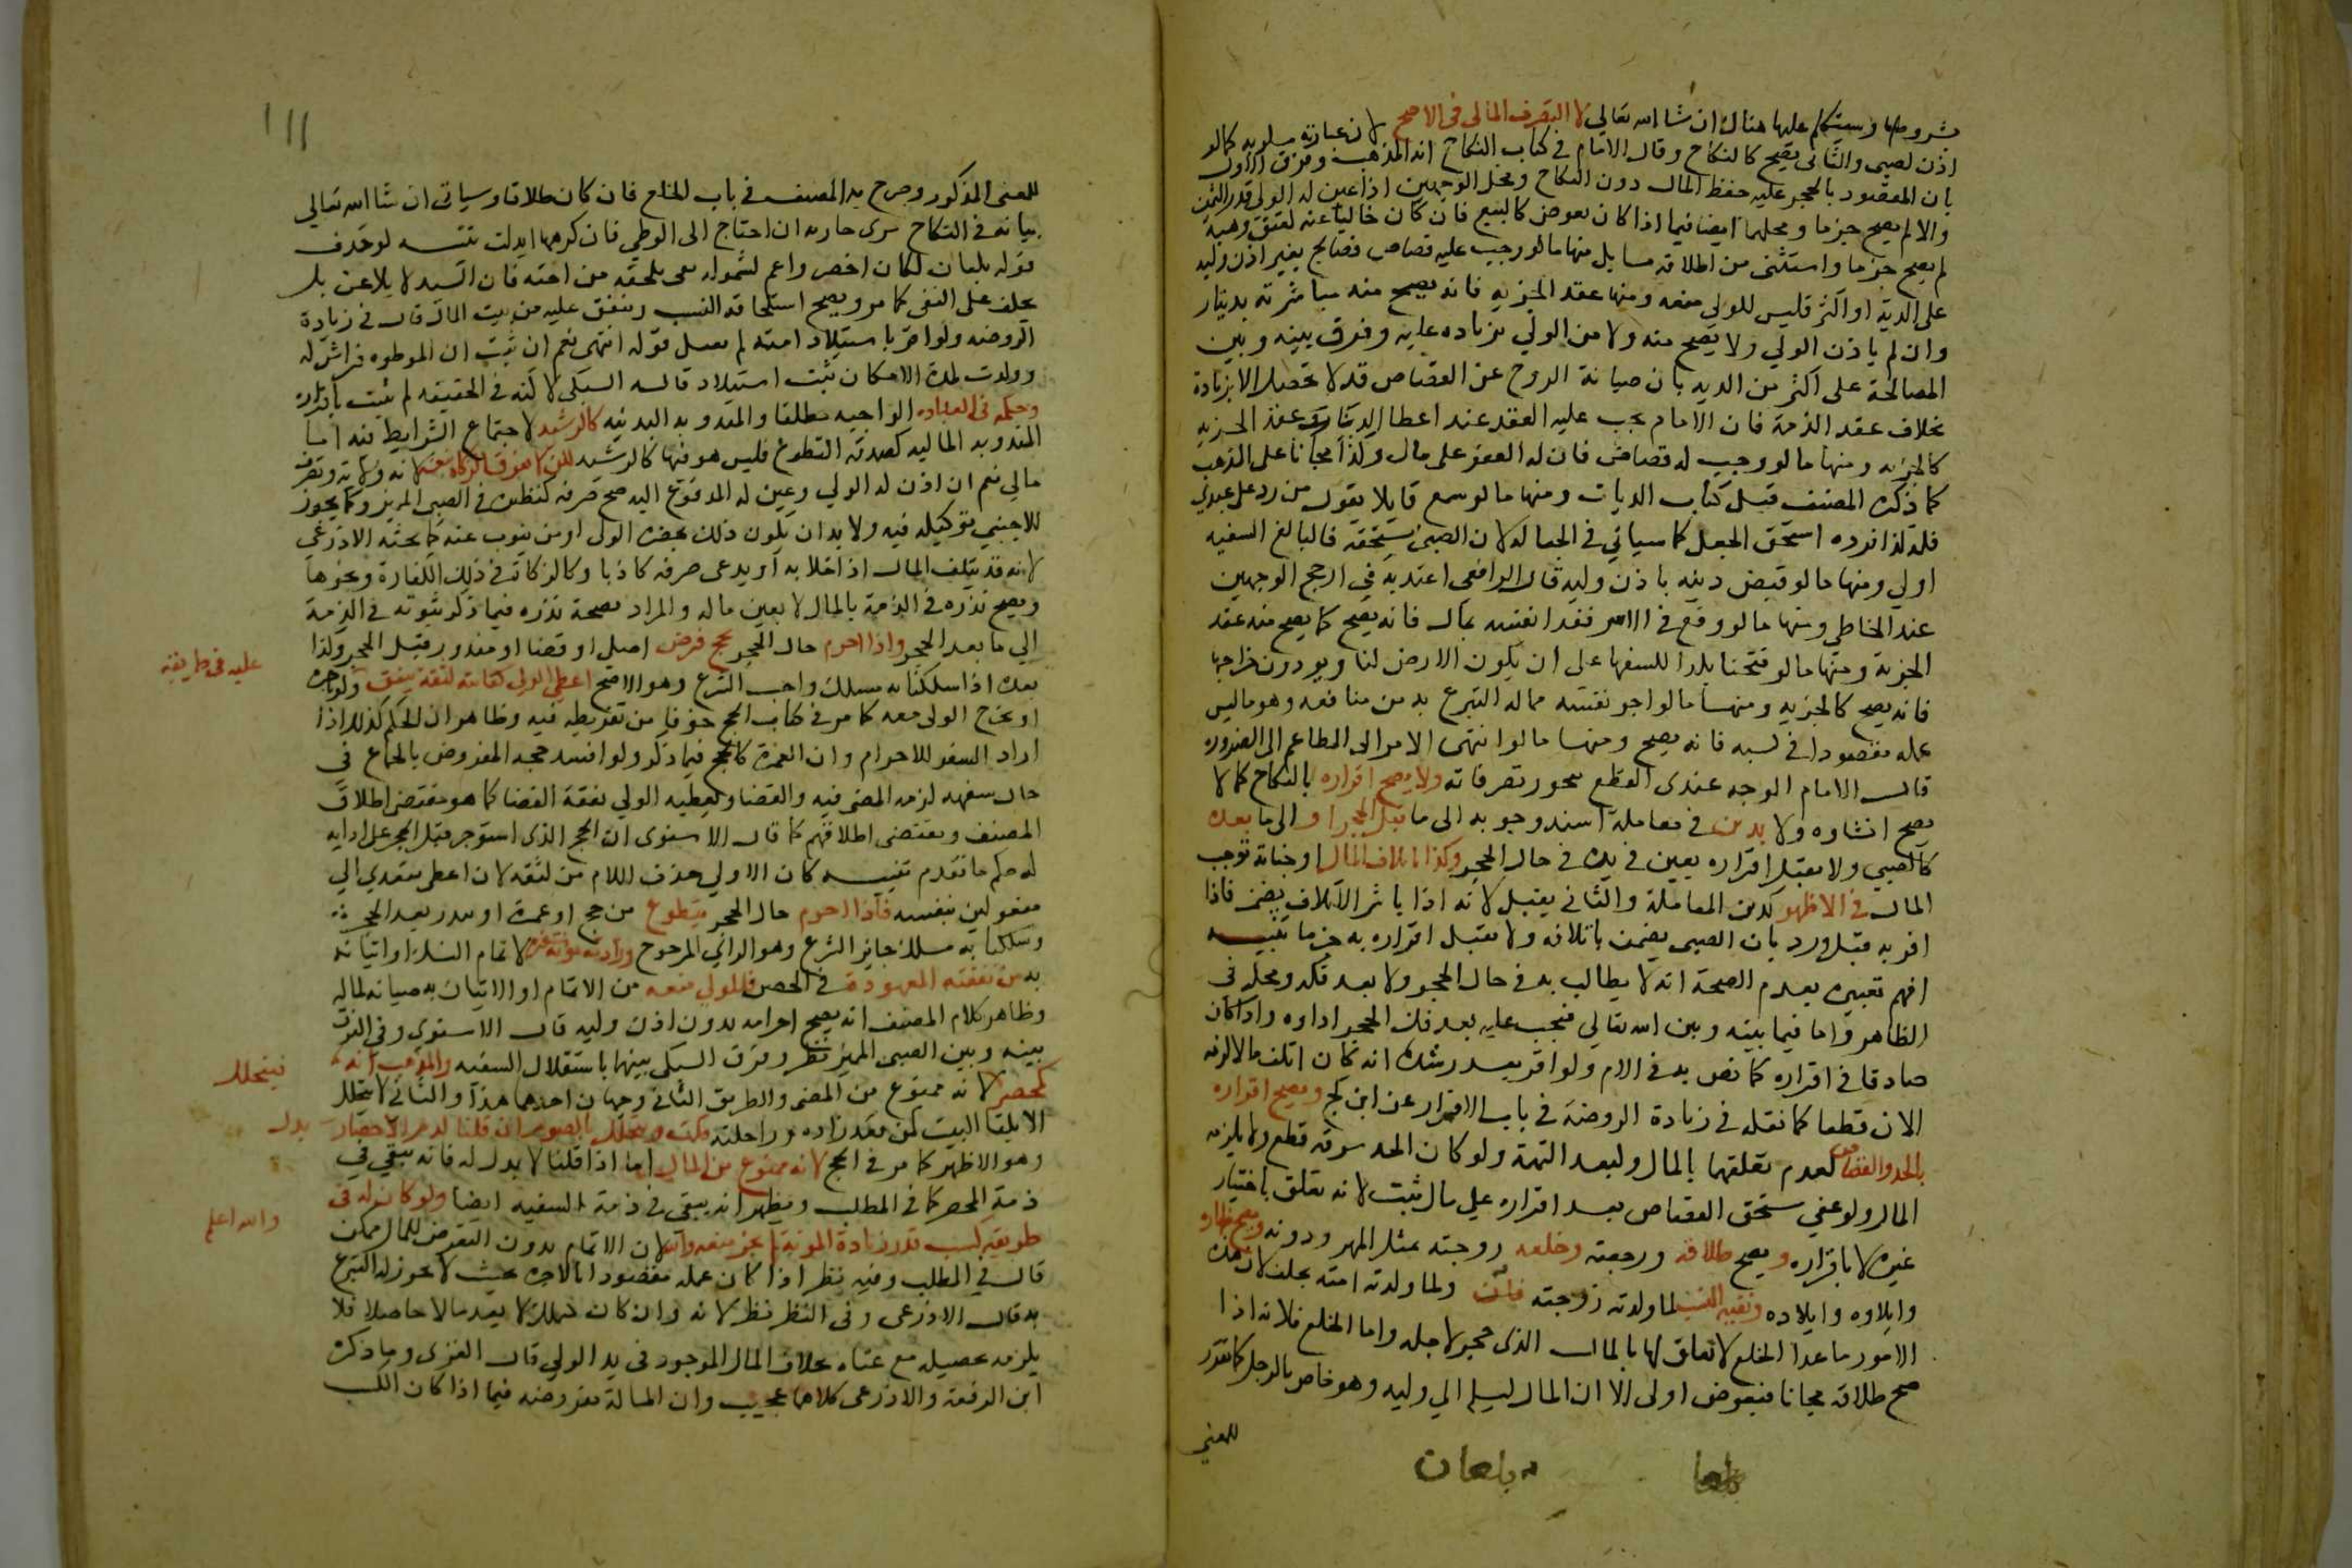 بشروطها وسيتكلم عليها هناك ان شا الله تعالي لا التصرف المالى في الاصح لان عبارته مسلوبه كما لو
اذن لصبى والثانى يصح كالنكاح وقال الامام في كتاب النكاح انه المذهب وفرق الاول
بان المقصود بالحجر عليه حفظ المال دون النكاح ومحل الوجهين اذا عين له الولى قدر الثمن
والا لم يصح جزما ومحلهما ايضا فيما اذا كان بعوض كالبيع فان كان خاليا عنه لعتق وهبة
لم يصح جزما واستثنى من اطلاقه مسايل منها ما لو وجب عليه قصاص فصالح بغير اذن وليه
على الدية او اكثر فليس للولى منعه ومنها عقد الجزيه فانه يصح منه مباشرته بدينار
وان لم ياذن الولي ولا يصح منه ولا من الولي بزياده عليه وفرق بينه وبين
المصالحة على اكثر من الديه بان صيانة الروح عن القصاص قد لا تحصل الا بزيادة
بخلاف عقد الذمة فان الامام يجب عليه العقد عند اعطا الدينار وعقد الجزيه
كالجزيه ومنها ما لو وجب له قصاص فان له العفو على مال وكذا مجانا على المذهب
كما ذكره المصنف قبيل كتاب الديات ومنها ما لو سمع قايلا يقول من رد على عبدي
فله كذا فرده استحق الجعل كما سياتي في الجعاله لان الصبى يستحقه فالبالغ السفيه
اولي ومنها ما لو قبض دينه باذن وليه قال الرافعي اعتد به في ارجح الوجهين
عند الحناطي ومنها ما لو وقع في الاسر ففدا نفسه بمال فانه يصح كما يصح منه عقد
الجزية ومنها ما لو فتحنا بلدا للسفها على ان يكون الارض لنا ويودون خراجها
فانه يصح كالجزيه ومنها ما لو اجر نفسه مما له التبرع به من منافعه وهو ما ليس
عمله مقصودا في كسبه فانه يصح ومنها ما لو انتهى الامر الى المطاعم الى الضروره
قال الامام الوجه عندى القطع بجوز تصرفاته ولا يصح اقراره بالنكاح كما لا
يصح انشاوه ولا بدين في معاملة اسند وجوبه الى ما قبل الحجر او الى ما بعده
كالصبي ولا يقبل اقراره بعين في يده في حال الحجر وكذا باتلاف المال او جناية توجب
المال في الاظهر كدين المعاملة والثانى يقبل لانه اذا باشر الاتلاف يضمن فاذا
اقر به قبل ورد بان الصبى يضمن باتلافه ولا يقبل اقراره به جزما تنبيه
افهم تعبيره بعدم الصحة انه لا يطالب به في حال الحجر ولا بعد فكه ومحله في
الظاهر واما فيما بينه وبين الله تعالي فيجب عليه بعد فك الحجر اداوه واذا كان
صادقا في اقراره كما نص به في الام ولو اقر بعد رشده انه كان اتلف مالا لزمه
الان قطعا كما نقله في زيادة الروضة في باب الاقرار عن ابن كج ويصح اقراره
بالحد والقصاص لعدم تعلقهما بالمال ولبعد التهمة ولو كان الحد سرقة قطع ولا يلزمه
المال ولو عفي مستحق القصاص بعد اقراره على مال ثبت لانه تعلق باختيار
غيره لا باقراره ويصح طلاقه ورجعته وخلعه زوجته بمثل المهر ودونه ويصح ظهاره
وايلاوه وايلاده ونفيه النسب لما ولدته زوجته بلعان ولما ولدته امته بحلف لان هذه
الامور ما عدا الخلع لا تعلق لها بالمال الذى حجر لاجله واما الخلع فلانه اذا
صح طلاقه مجانا فبعوض اولى الا ان المال يسلم الي وليه وهو خاص بالرجل كما تقرر
للمعنى
بلعان
١١١
للمعنى المذكور وصرح به المصنف في باب الخلع فان كان مطلاقا وسياتى ان شا الله تعالي
بيانه في النكاح سرى جاريه ان احتاج الى الوطي فان كرهها ابدلت تنبيه لو حذف
قوله بلعان لكان اخصر واعم لشموله نفى ما يلحقه من امته فان السيد لا يلاعن بل
يحلف على النفى كما مر ويصح استلحاقه النسب وينفق عليه من بيت المال قال في زيادة
الروضه ولو اقر باستيلاد امته لم يقبل قوله انتهى نعم ان ثبت ان الموطوه فراش له
وولدت لمدة الامكان ثبت استيلاد قاله السبكى لكنه في الحقيقه لم يثبت باقراره
وحكمه في العباده الواجبه مطلقا والمندوبه البدنيه كالرشيد لاجتماع الشرايط فيه اما
المندوبه الماليه كصدقة التطوع فليس هو فيها كالرشيد لكن لا يفرق الزكاة بنفسه لانه ولاية وتصرف
مالي نعم ان اذن له الولي وعين له المدفوع اليه صح صرفه كنظيره في الصبى المميز وكما يجوز
للاجنبي توكيله فيه ولا بد ان يكون ذلك بحضرة الولى او من ينوب عنه كما بحثه الاذرعي
لانه قد يتلف المال اذا خلا به او يدعى صرفه كاذبا وكالزكاة في ذلك الكفارة ونحوها
ويصح نذره في الذمة بالمال لا بعين ماله والمراد بصحة نذره فيما ذكر ثبوته في الذمة
الي ما بعد الحجر واذا احرم حال الحجر بحج فرض اصلي او قضا او منذور قبل الحجر وكذا
بعده اذا سلكنا به مسلك واجب الشرع وهو الاصح اعطى الولى كفايته لثقة ينفق ولو باجرة
عليه في طريقه
او يخرج الولى معه كما مر في كتاب الحج خوفا من تفريطه فيه وظاهر ان الحكم كذلك اذا
اراد السفر للاحرام وان العمرة كالحج فيما ذكر ولو افسد حجه المفروض بالجماع في
حال سفهه لزمه المضى فيه والقضا ويعطيه الولي نفقة القضا كما هو مقتضى اطلاق
المصنف ومقتضى اطلاقهم كما قال الاسنوى ان الحج الذى استوجر قبل الحجر على ادايه
له حكم ما تقدم تنبيه كان الاولي حذف اللام من لثقه لان اعطى يتعدي الي
مفعولين بنفسه فاذا احرم حال الحجر بتطوع من حج او عمرة او نذر بعد الحجر
وسلكنا به مسلك جايز الشرع وهو الراي المرجوح وزادت مونة سفره لاتمام النسك او اتيانه
به عن نفقته المعهودة في الحضر فللولي منعه من الاتمام او الاتيان به صيانة لماله
وظاهر كلام المصنف انه يصح احرامه بدون اذن وليه قال الاسنوي وفي الفرق
بينه وبين الصبى المميز نظر وفرق السبكى بينهما باستقلال السفيه والمذهب انه
كمحصر فيتحلل لانه ممنوع من المضى والطريق الثانى وجهان احدهما هذا والثانى لا يتحلل
الا بلقا البيت كمن فقد زاده وراحلته قلت ويتحلل بالصوم ان قلنا لدم الاحصار بدل
وهو الاظهر كما مر في الحج لانه ممنوع من المال اما اذا قلنا لا بدل له فانه يبقي في
ذمة المحصر كما في المطلب ويظهر انه يبقى في ذمة السفيه ايضا ولو كان له في
طريقه كسب قدر زيادة المونة لم يجز منعه والله اعلم لان الاتمام بدون التعرض للمال ممكن
قال في المطلب وفيه نظر اذا كان عمله مقصودا بالاجره بحيث لا يجوز له التبرع
به قال الاذرعى وفي النظر نظر لانه وان كان كذلك لا يعد مالا حاصلا فلا
يلزمه تحصيله مع غناه بخلاف المال الموجود في يد الولي قال الغزى وما ذكره
ابن الرفعة والاذرعى كلاهما عجيب وان المسالة مفروضه فيما اذا كان الكسب